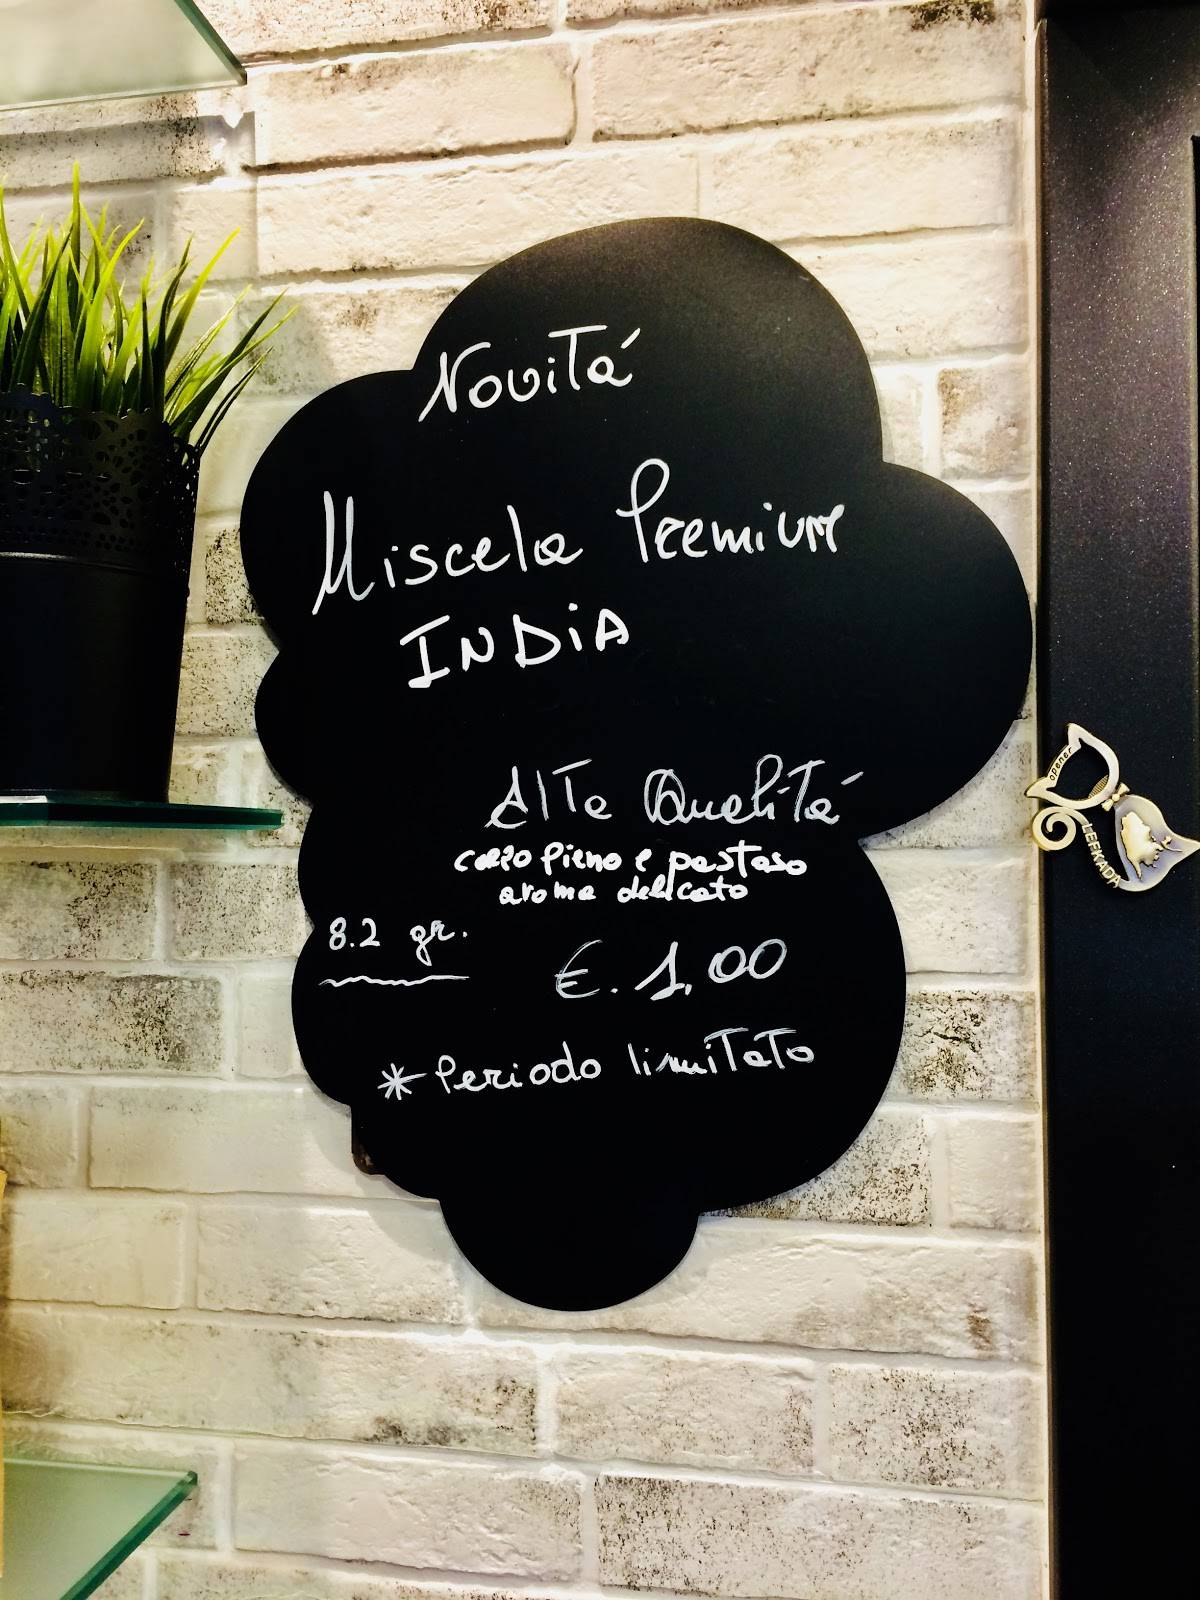 Novitá
Miscela Premium
INDiA
Alta Qualitá
corpo pieno e pastoso
aroma delicato
8.2 gr.
€. 1,00
* Periodo limitato
opener
LEFKADA